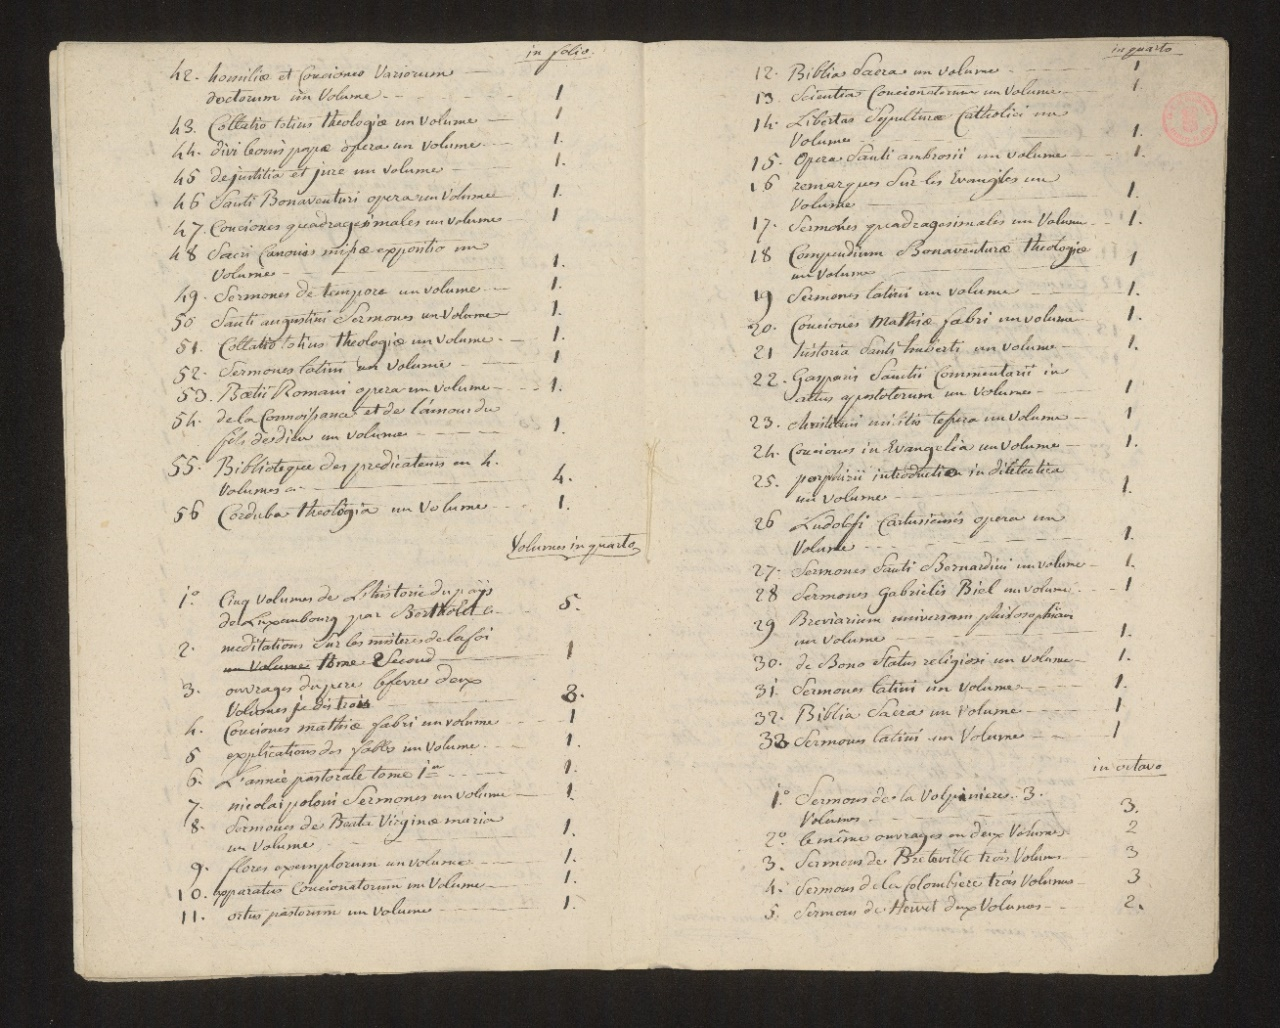 in folio.
42. homiliæ et Conciones Variorum
doctorum un Volume 1
43. Collatio totius theologiæ un volume 1
44. divi leonis papæ opera un volume 1.
45 de justitia et jure un volume 1.
46 Santi Bonaventuri opera un Volume 1.
47. Conciones quadragesimales un volume 1
48 Sacri Canonis missæ expositio un
Volume 1.
49. Sermones de tempore un volume 1.
50 Santi augustini Sermones un Volume 1.
51. Collatio totius theologiæ un volume. 1.
52. Sermones latini un volume 1
53. Boetii Romani opera un volume 1.
54. de la Connoissance et de l'amour du
fils de dieu un volume 1.
55. Biblioteque des predicateurs en 4.
Volumes 4.
56 Corduba theologia un volume 1.
Volumes in quarto
1.° Cinq volumes de L'histoire du païs
de Luxembourg par Bertholet 5.
2. meditations sur les misteres de la foi
un Volume tome Second 1
3. ouvrages du pere lefevre deux
Volumes je dis trois 3.
4. Conciones mathiæ fabri un volume 1
5 explications des fables un volume. 1.
6. L'année pastorale tome 1er 1.
7. nicolai poloni Sermones un volume 1
8. Sermones de Beata Virginæ maria
un Volume 1.
9. flores exemplorum un volume 1.
10. apparatus Concionatorum un Volume 1.
11. ortus pastorum un volume 1.
in quarto
12. Biblia Sacra un volume 1
13 Scientia Concionatorum un Volume 1
14. Libertas Sepulturæ Catholici un
Volume 1.
15. Opera Santi ambrosii un volume 1.
16 remarques Sur les Evangiles un
Volume 1.
17. Sermones quadragesimales un Volume 1.
18 Compendium Bonaventuræ theologiæ
un Volume 1
19 Sermones latini un volume 1.
20. Conciones Mathiæ fabri un volume 1.
21 historia Santi huberti un volume 1.
22. Gasparis Sanctii Commentarii in
actus apostolorum un Volume 1
23. christiani un volume 1
24. Conciones in Evangelia un Volume 1.
25. porphirii introduction in
un volume 1.
26 Ludolfi Cartusiensis opera un
Volume 1.
27. Sermones Santi Bernardini un volume 1.
28 Sermones Gabrielis Biel un volume. 1
29 Breviarium universam philosophiam
un volume 1.
30. de Bono Status religiosi un volume 1.
31. Sermones latini un Volume 1.
32. Biblia Sacra un Volume 1
33 Sermones latini un Volume 1
in octavo
1.° Sermons de la Volpiniere. 3.
Volumes. 3.
2.° le même ouvrages en deux Volumes 2
3. Sermons de Breteville trois Volumes 3
4. Sermons de la Colombiere trois Volumes 3
5. Sermons de Hervet deux Volumes 2.